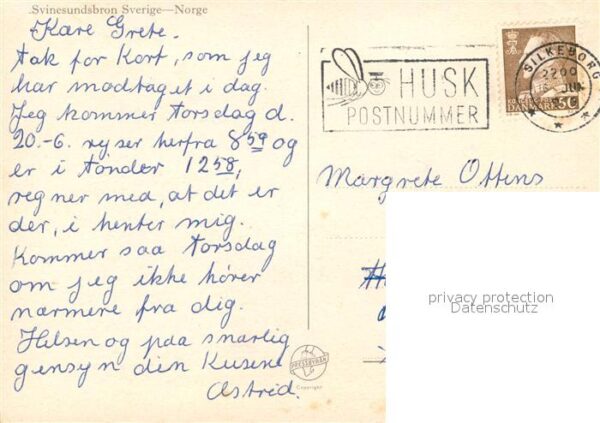 Svinesundsbron Sverige—Norge
Kære Grete.
tak for Kort, som jeg
har modtaget i dag.
Jeg kommer torsdag d.
20.-6. rejser herfra 8 59 og
er i tønder 12 58,
regner med, at det er
der, i henter mig.
Kommer saa torsdag
om jeg ikke hører
nærmere fra dig.
Hilsen og paa snarlig
gensyn din Kusine
Astrid.
HUSK
POSTNUMMER
SILKEBORG
DANMARK
Margrete Ottens
privacy protection
Datenschutz
PRESSBYRÅN
Copyright